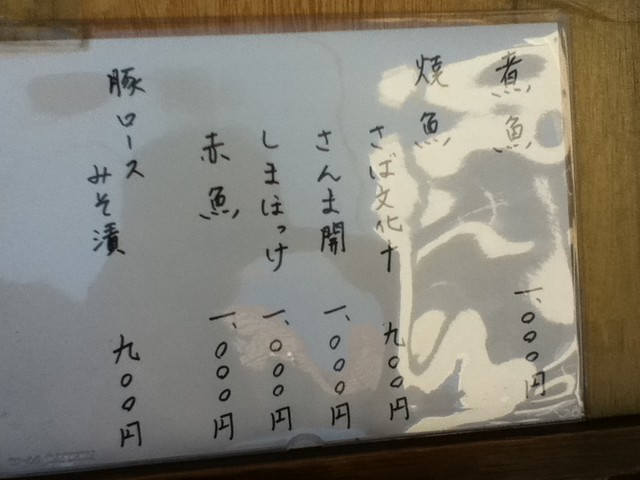 煮魚 一、〇〇〇円
焼魚
さば文化干 九〇〇円
さんま開 一、〇〇〇円
しまほっけ 一、〇〇〇円
赤魚 一、〇〇〇円
豚ロース
みそ漬 九〇〇円